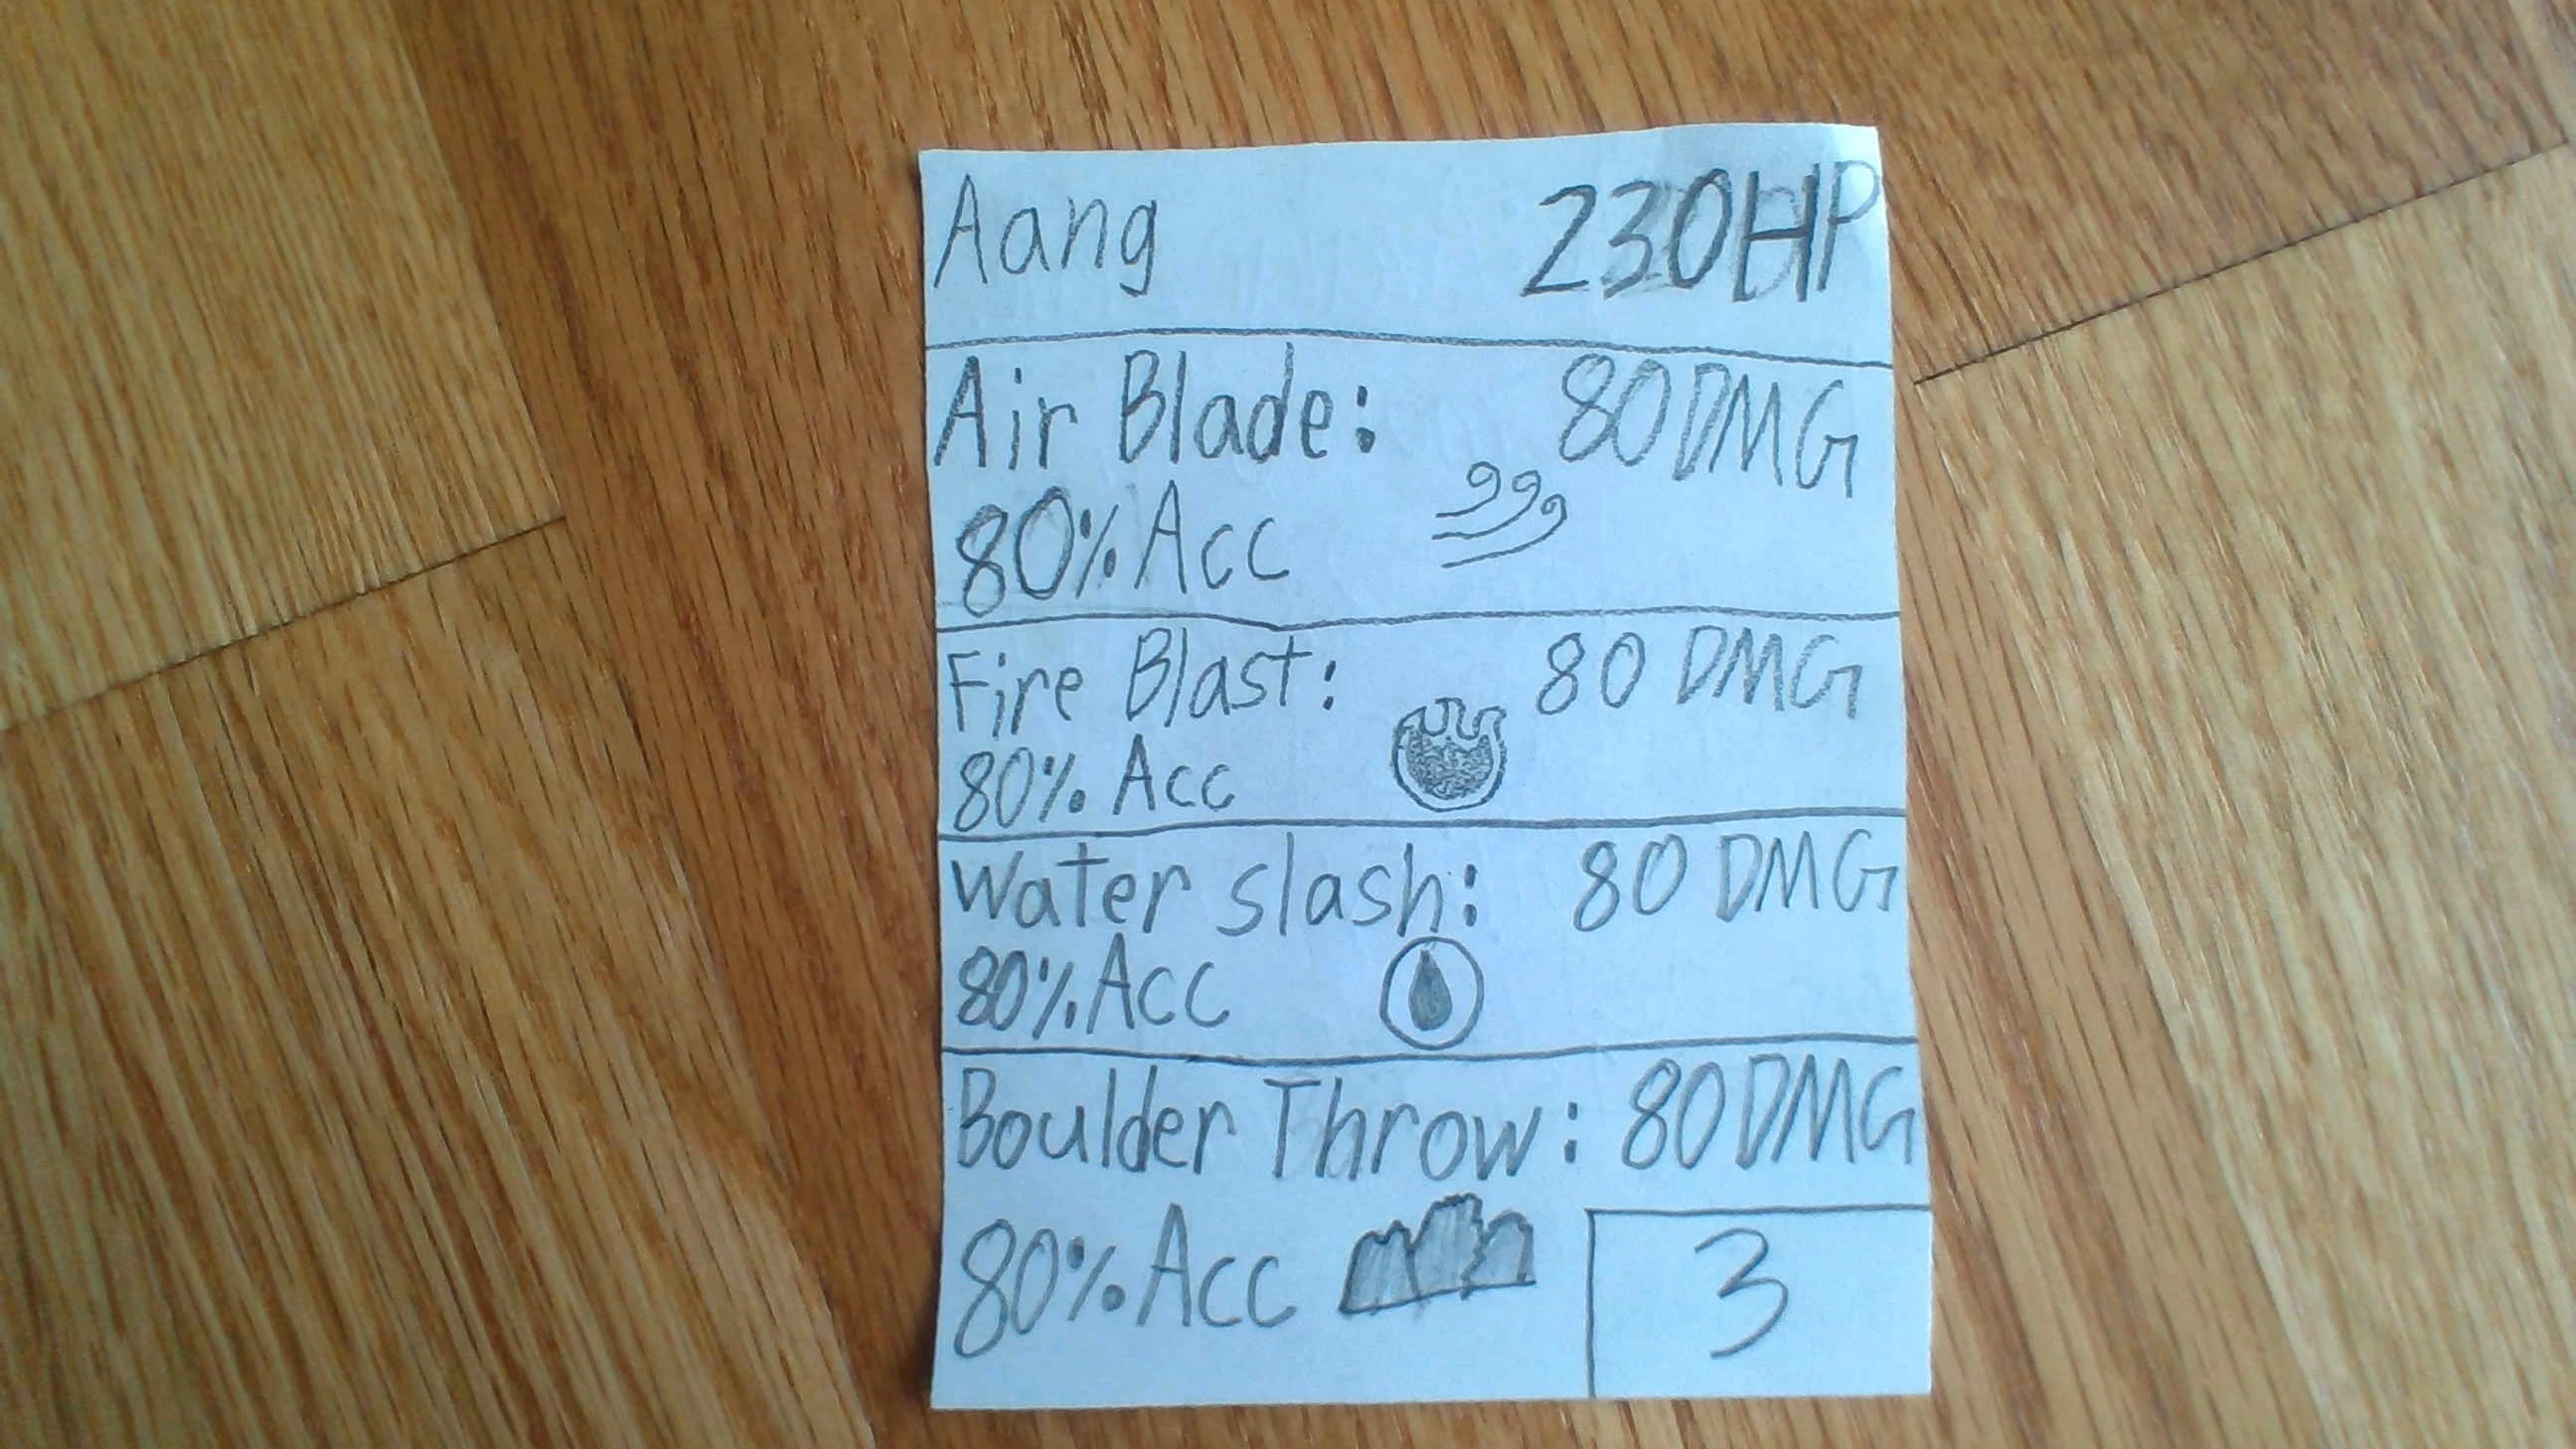 Aang 230HP
Air Blade: 80DMG
80% Acc
Fire Blast: 80 DMG
80% Acc
Water slash: 80 DMG
80% Acc
Boulder Throw: 80DMG
80% Acc
3